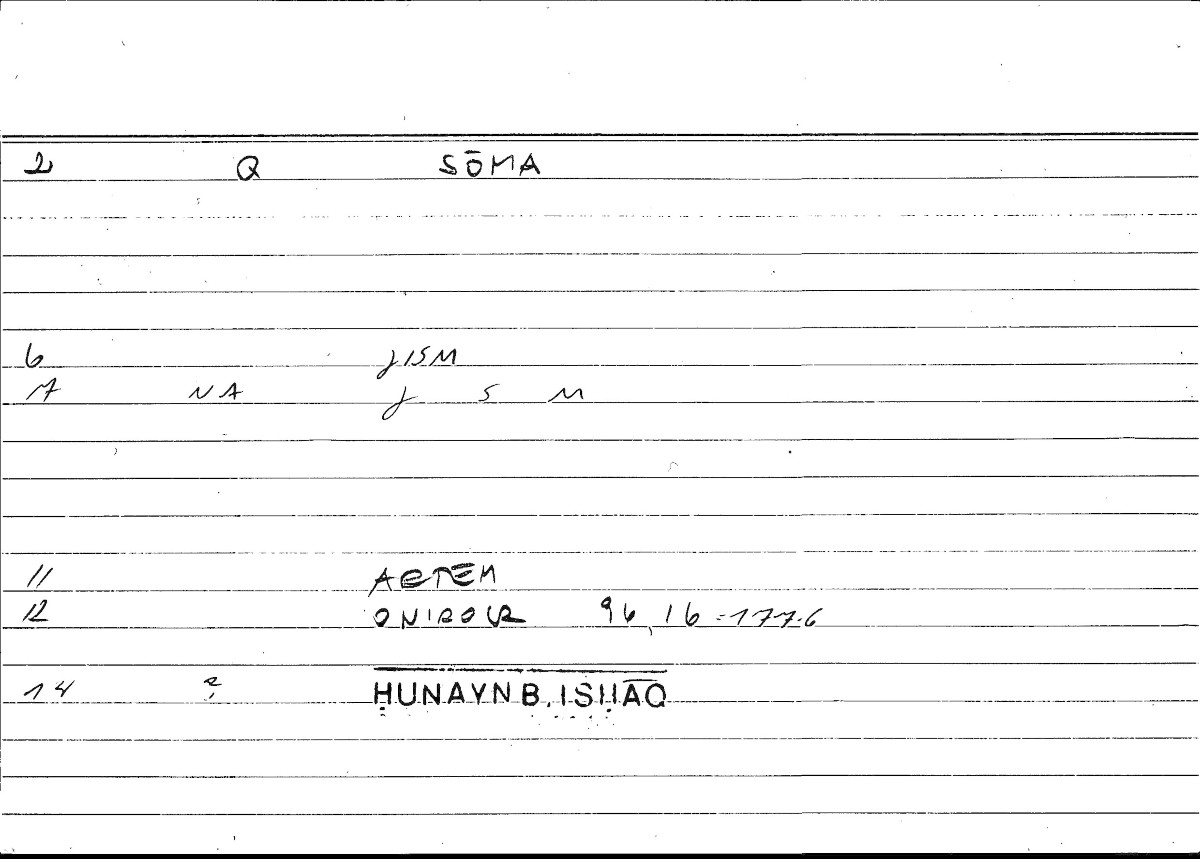 2 Q SŌMA
6 JISM
7 NA J S M
11 ARTEM
12 ONIROCR 96,16=177.6
14 ? ḤUNAYN B. ISḤĀQ